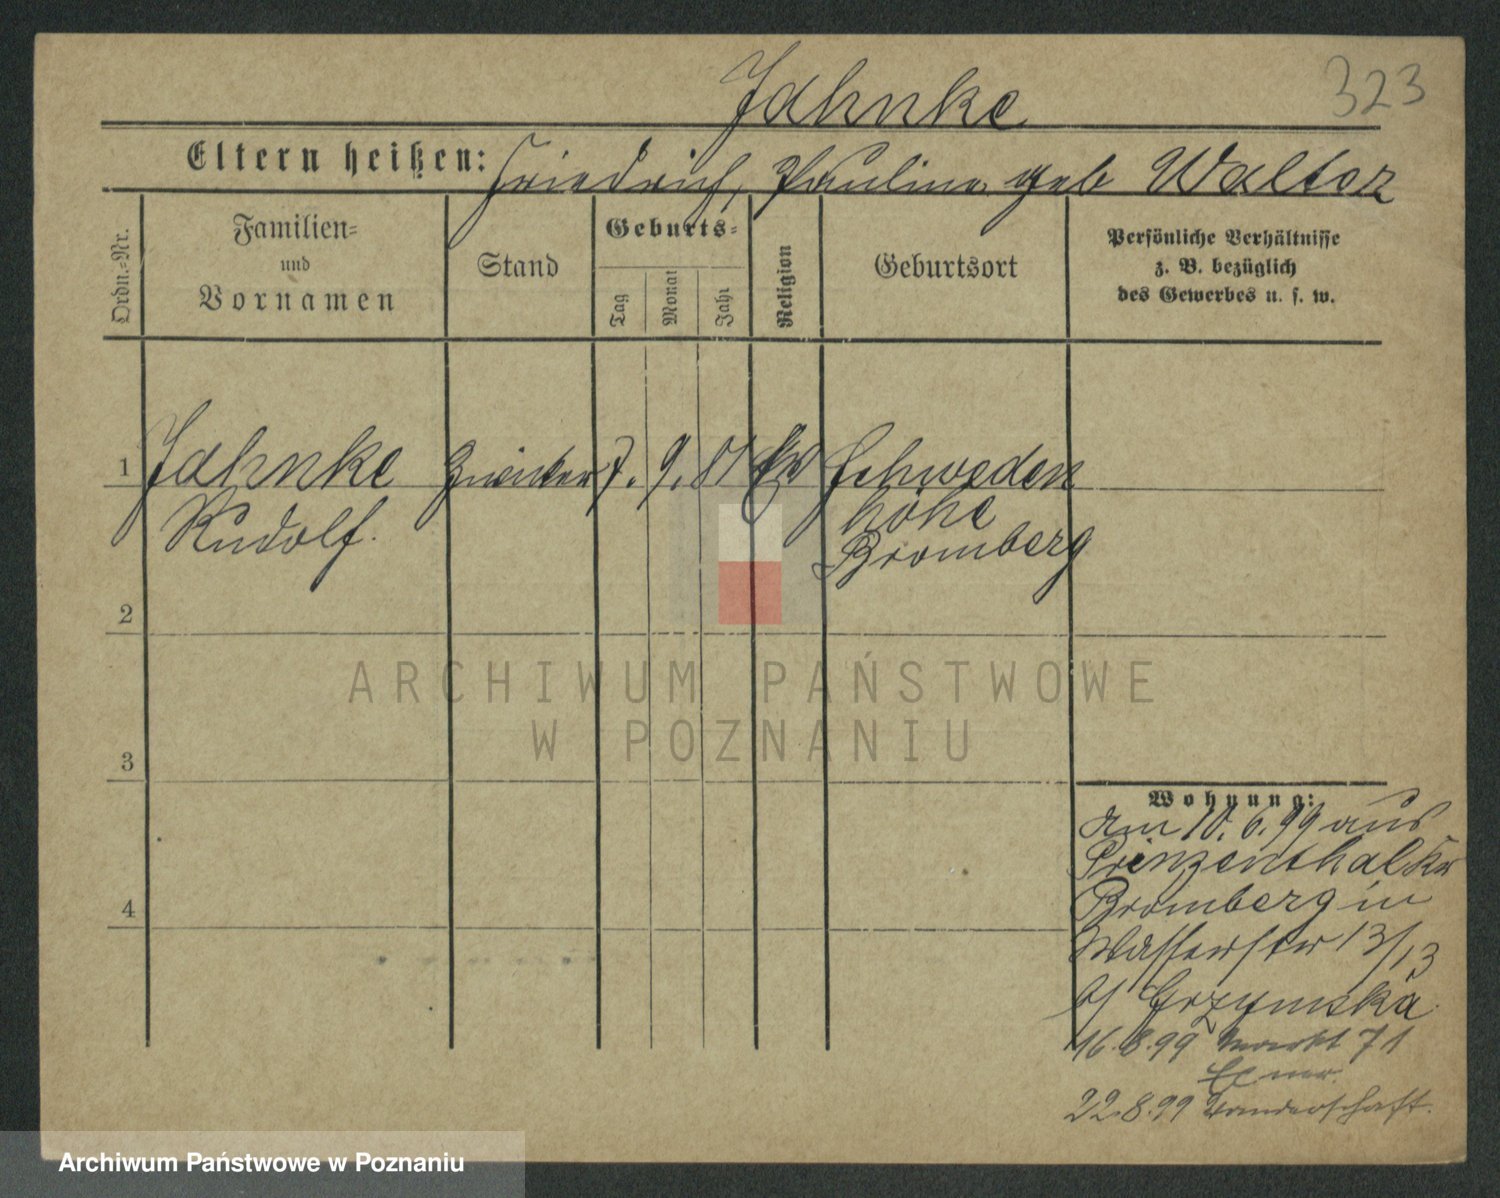 323
Jahnke
Eltern heißen: Friedrich, Pauline geb Walter
Ordn.-Nr.
Familien-
und
Vornamen
Stand
Geburts-
Tag
Monat
Jahr
Religion
Geburtsort
Persönliche Verhältnisse
z. B. bezüglich
des Gewerbes u. s. w.
1 Jahnke 7. 9. 81 Ev Schweden
Rudolf. höhe
Bromberg
2
3
4
Wohnung:
am 10. 6. 99 aus
Prinzenthal Kr
Bromberg in
Wasserstr 13/13
b/ Grzymska
16.8.99 Markt 71
22.8.99 Wanderschaft.
ARCHIWUM PAŃSTWOWE
W POZNANIU
Archiwum Państwowe w Poznaniu